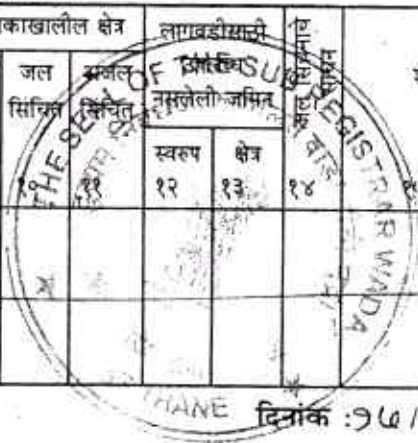 काखालील क्षेत्र
लागवडीसाठी
उपलब्ध
नसलेली जमिन
जल
सिंचित
अजल
सिंचित
स्वरुप
क्षेत्र
११
१२
१३
१४
THE SEAL OF THE SUB REGISTRAR WADA
THANE
दिनांक :